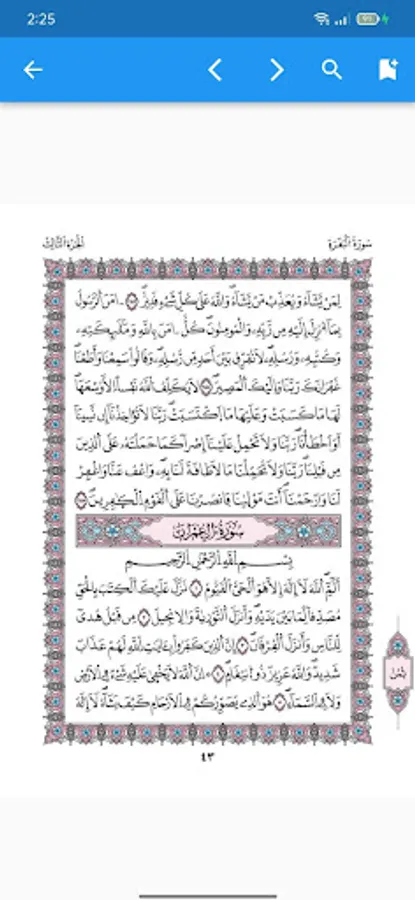 2:25
سورة البقرة
الجزء الثالث
لمن يشاء ويعذب من يشاء والله على كل شيء قدير ءامن الرسول
بما أنزل إليه من ربه والمومنون كل ءامن بالله وملئكته
وكتبه ورسله لا نفرق بين أحد من رسله وقالوا سمعنا وأطعنا
غفرانك ربنا وإليك المصير لا يكلف الله نفسا الا وسعها
لها ما كسبت وعليها ما اكتسبت ربنا لا تواخذنا إن نسينا
أو اخطأنا ربنا ولا تحمل علينا إصرا كما حملته على الذين
من قبلنا ربنا ولا تحملنا ما لا طاقة لنا به واعف عنا واغفر
لنا وارحمنا أنت مولينا فانصرنا على القوم الكفرين
سورة ءال عمران
بسم الله الرحمن الرحيم
ألم الله لا إله إلا هو الحي القيوم نزل عليك الكتب بالحق
مصدقا لما بين يديه وأنزل التورية والانجيل من قبل هدى
للناس وأنزل الفرقان إن الذين كفروا بئايت الله لهم عذاب
شديد والله عزيز ذو انتقام إن الله لا يخفى عليه شيء في الارض
ولا في السماء هو الذي يصوركم في الارحام كيف يشاء لا إله
ثمن
٤٣